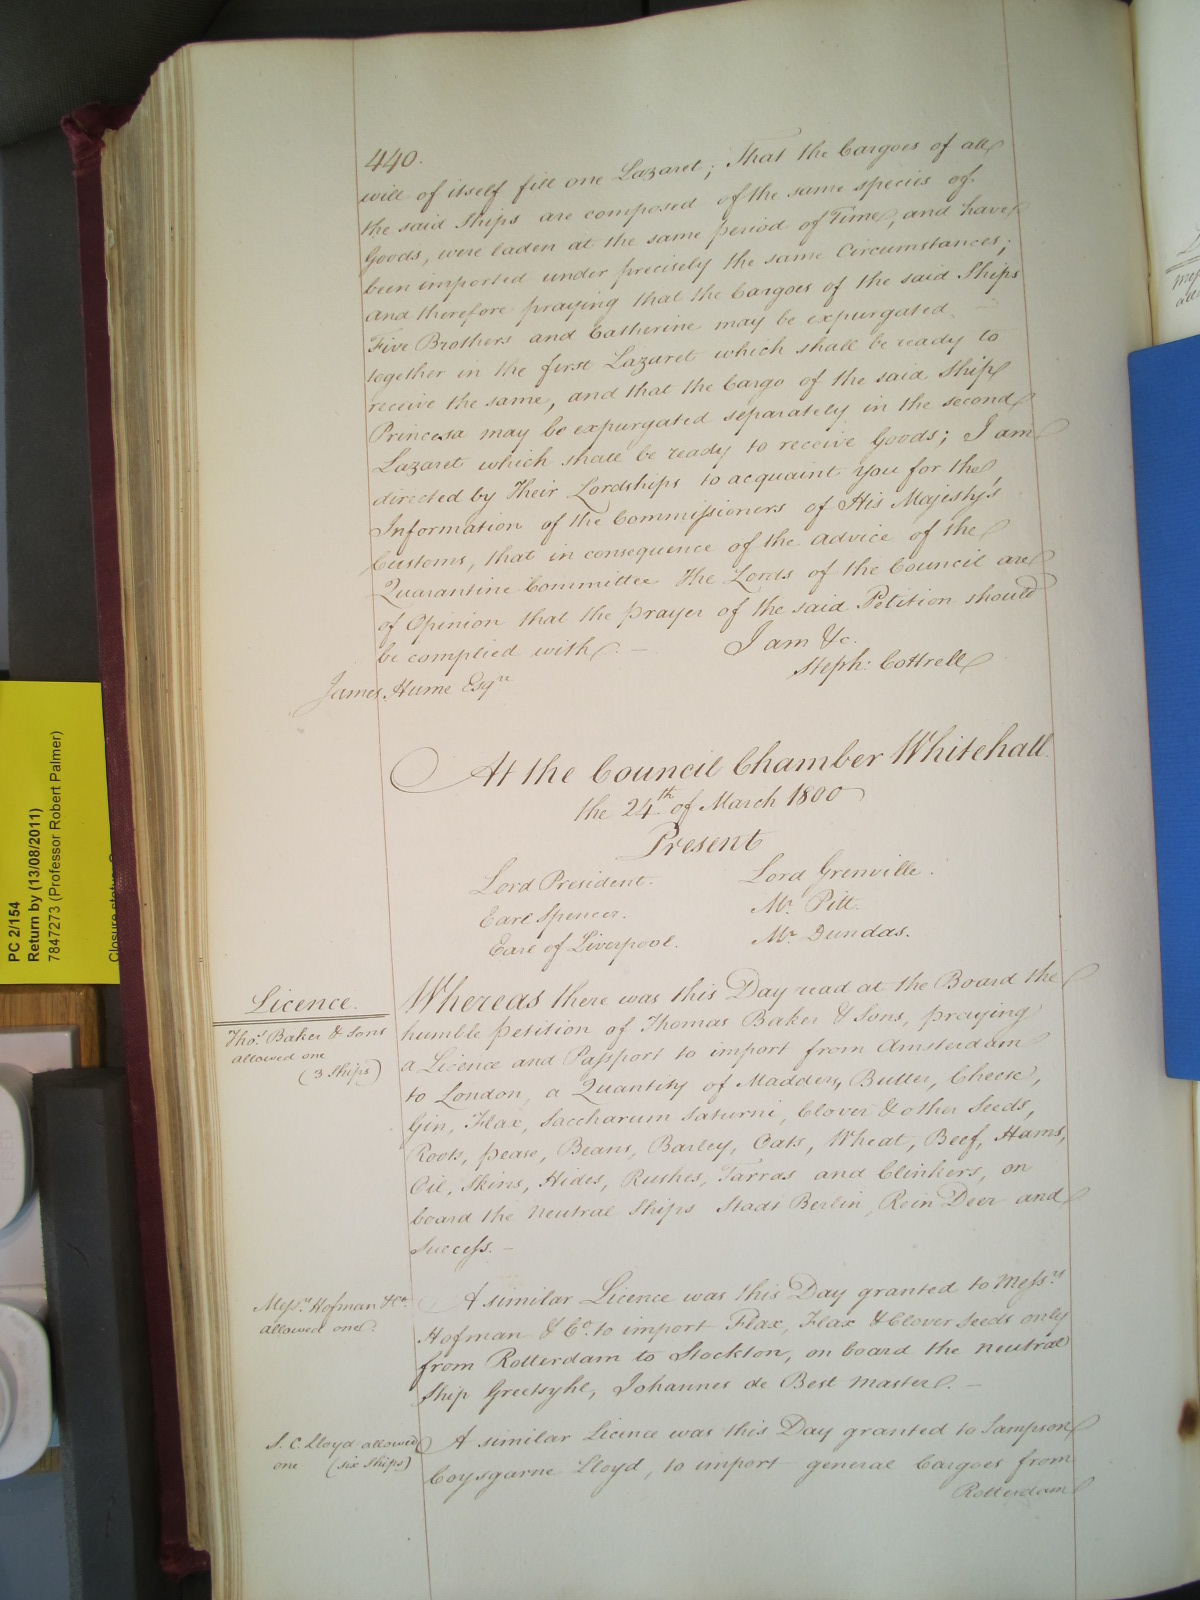 440.
will of itself fill one Lazaret; That the Cargoes of all
the said Ships are composed of the same species of
Goods, were laden at the same period of Time, and have
been imported under precisely the same Circumstances;
and therefore praying that the Cargoes of the said Ships
Five Brothers and Catherine may be expurgated
together in the first Lazaret which shall be ready to
receive the same, and that the Cargo of the said Ship
Princesa may be expurgated separately in the second
Lazaret which shall be ready to receive Goods; I am
directed by Their Lordships to acquaint you for the
Information of the Commissioners of His Majesty's
Customs, that in consequence of the advice of the
Quarantine Committee The Lords of the Council are
of Opinion that the prayer of the said Petition should
be complied with. —
I am &c.
Steph: Cottrell
James Hume Esqr
At the Council Chamber Whitehall
the 24th of March 1800
Present
Lord President. Lord Grenville.
Earl Spencer. Mr. Pitt.
Earl of Liverpool. Mr. Dundas.
Licence.
Thos. Baker & Sons
allowed one
(3 Ships)
Whereas there was this Day read at the Board the
humble petition of Thomas Baker & Sons, praying
a Licence and Passport to import from Amsterdam
to London, a Quantity of Madders, Butter, Cheese,
Gin, Flax, Saccharum Saturni, Clover & other Seeds,
Roots, pease, Beans, Barley, Oats, Wheat, Beef, Hams,
Oil, Skins, Hides, Rushes, Tarras and Clinkers, on
board the neutral Ships Stadt Berlin, Rein Deer and
Success. —
Messrs. Hofman & Co.
allowed one
A similar Licence was this Day granted to Messrs.
Hofman & Co. to import Flax, Flax & Clover Seeds only
from Rotterdam to Stockton, on board the neutral
Ship Greetsyhl, Johannes de Best Master. —
S. C. Lloyd allowed
one (six Ships)
A similar Licence was this Day granted to Sampson
Coysgarne Lloyd, to import general Cargoes from
Rotterdam
PC 2/154
Return by (13/08/2011)
7847273 (Professor Robert Palmer)